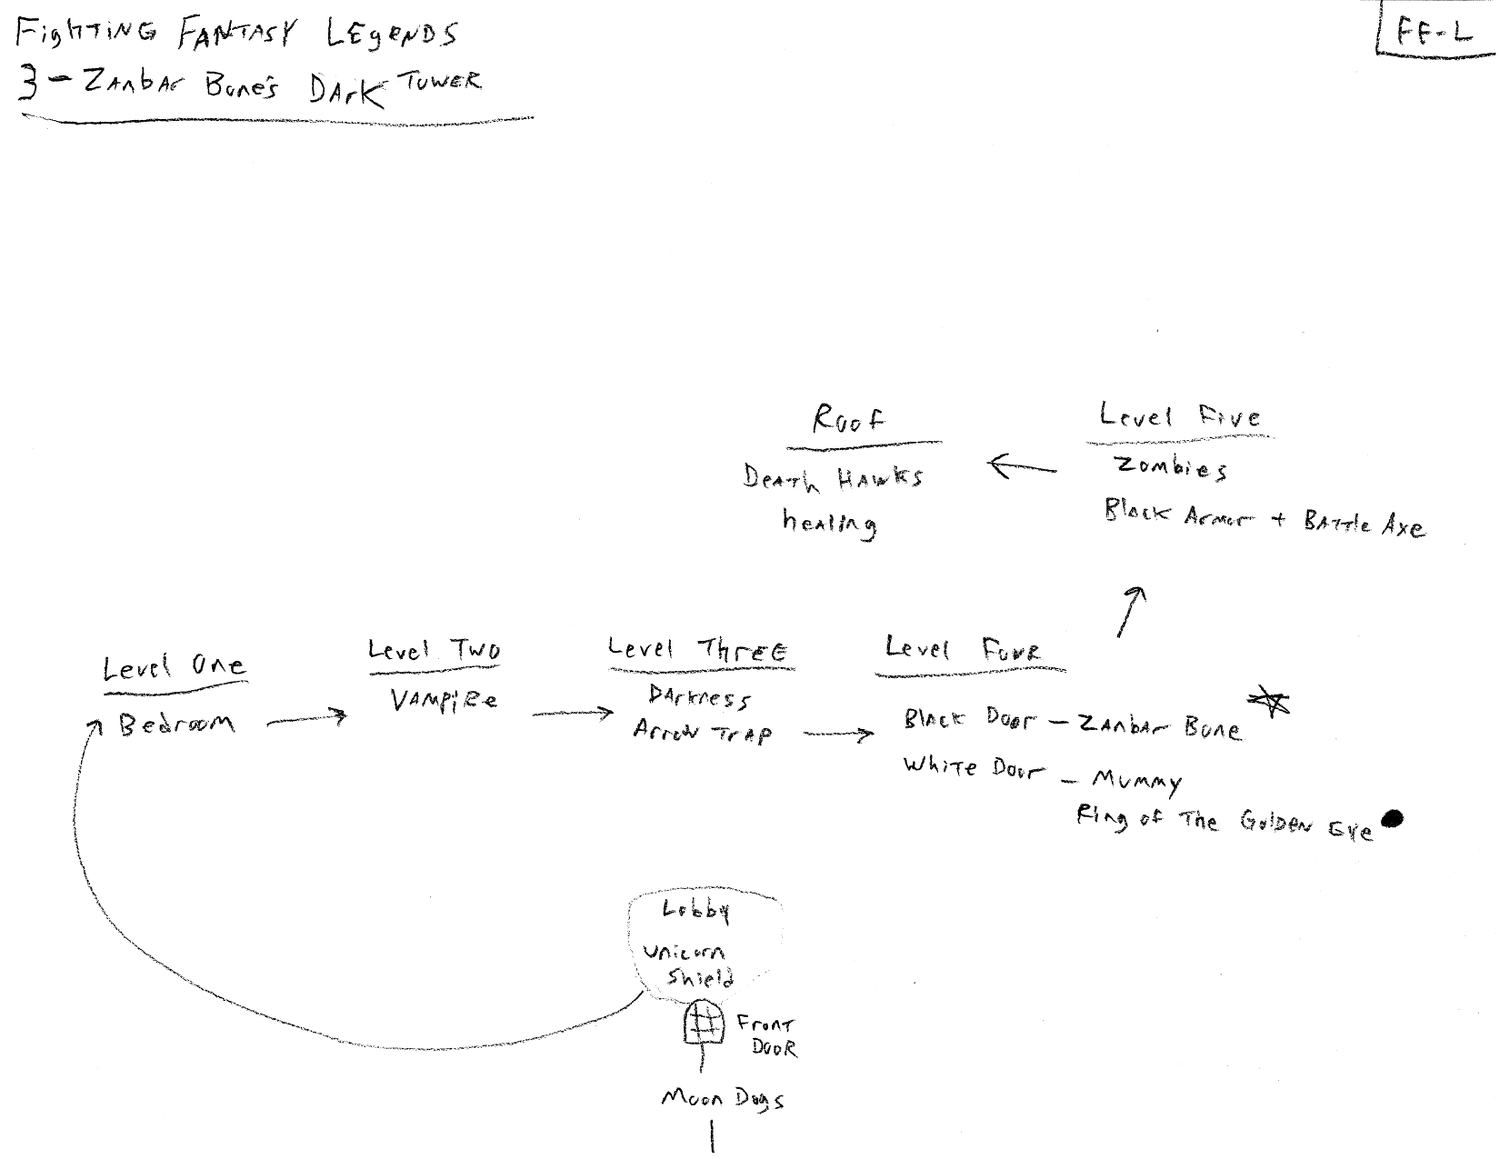 Fighting Fantasy Legends
FF-L
3 - Zanbar Bone's Dark Tower
Roof
Death Hawks
healing
Level Five
Zombies
Black Armor + Battle Axe
Level One
Bedroom
Level Two
Vampire
Level Three
Darkness
Arrow Trap
Level Four
Black Door - Zanbar Bone
White Door - Mummy
Ring of The Golden Eye
Lobby
Unicorn
Shield
Front
Door
Moon Dogs